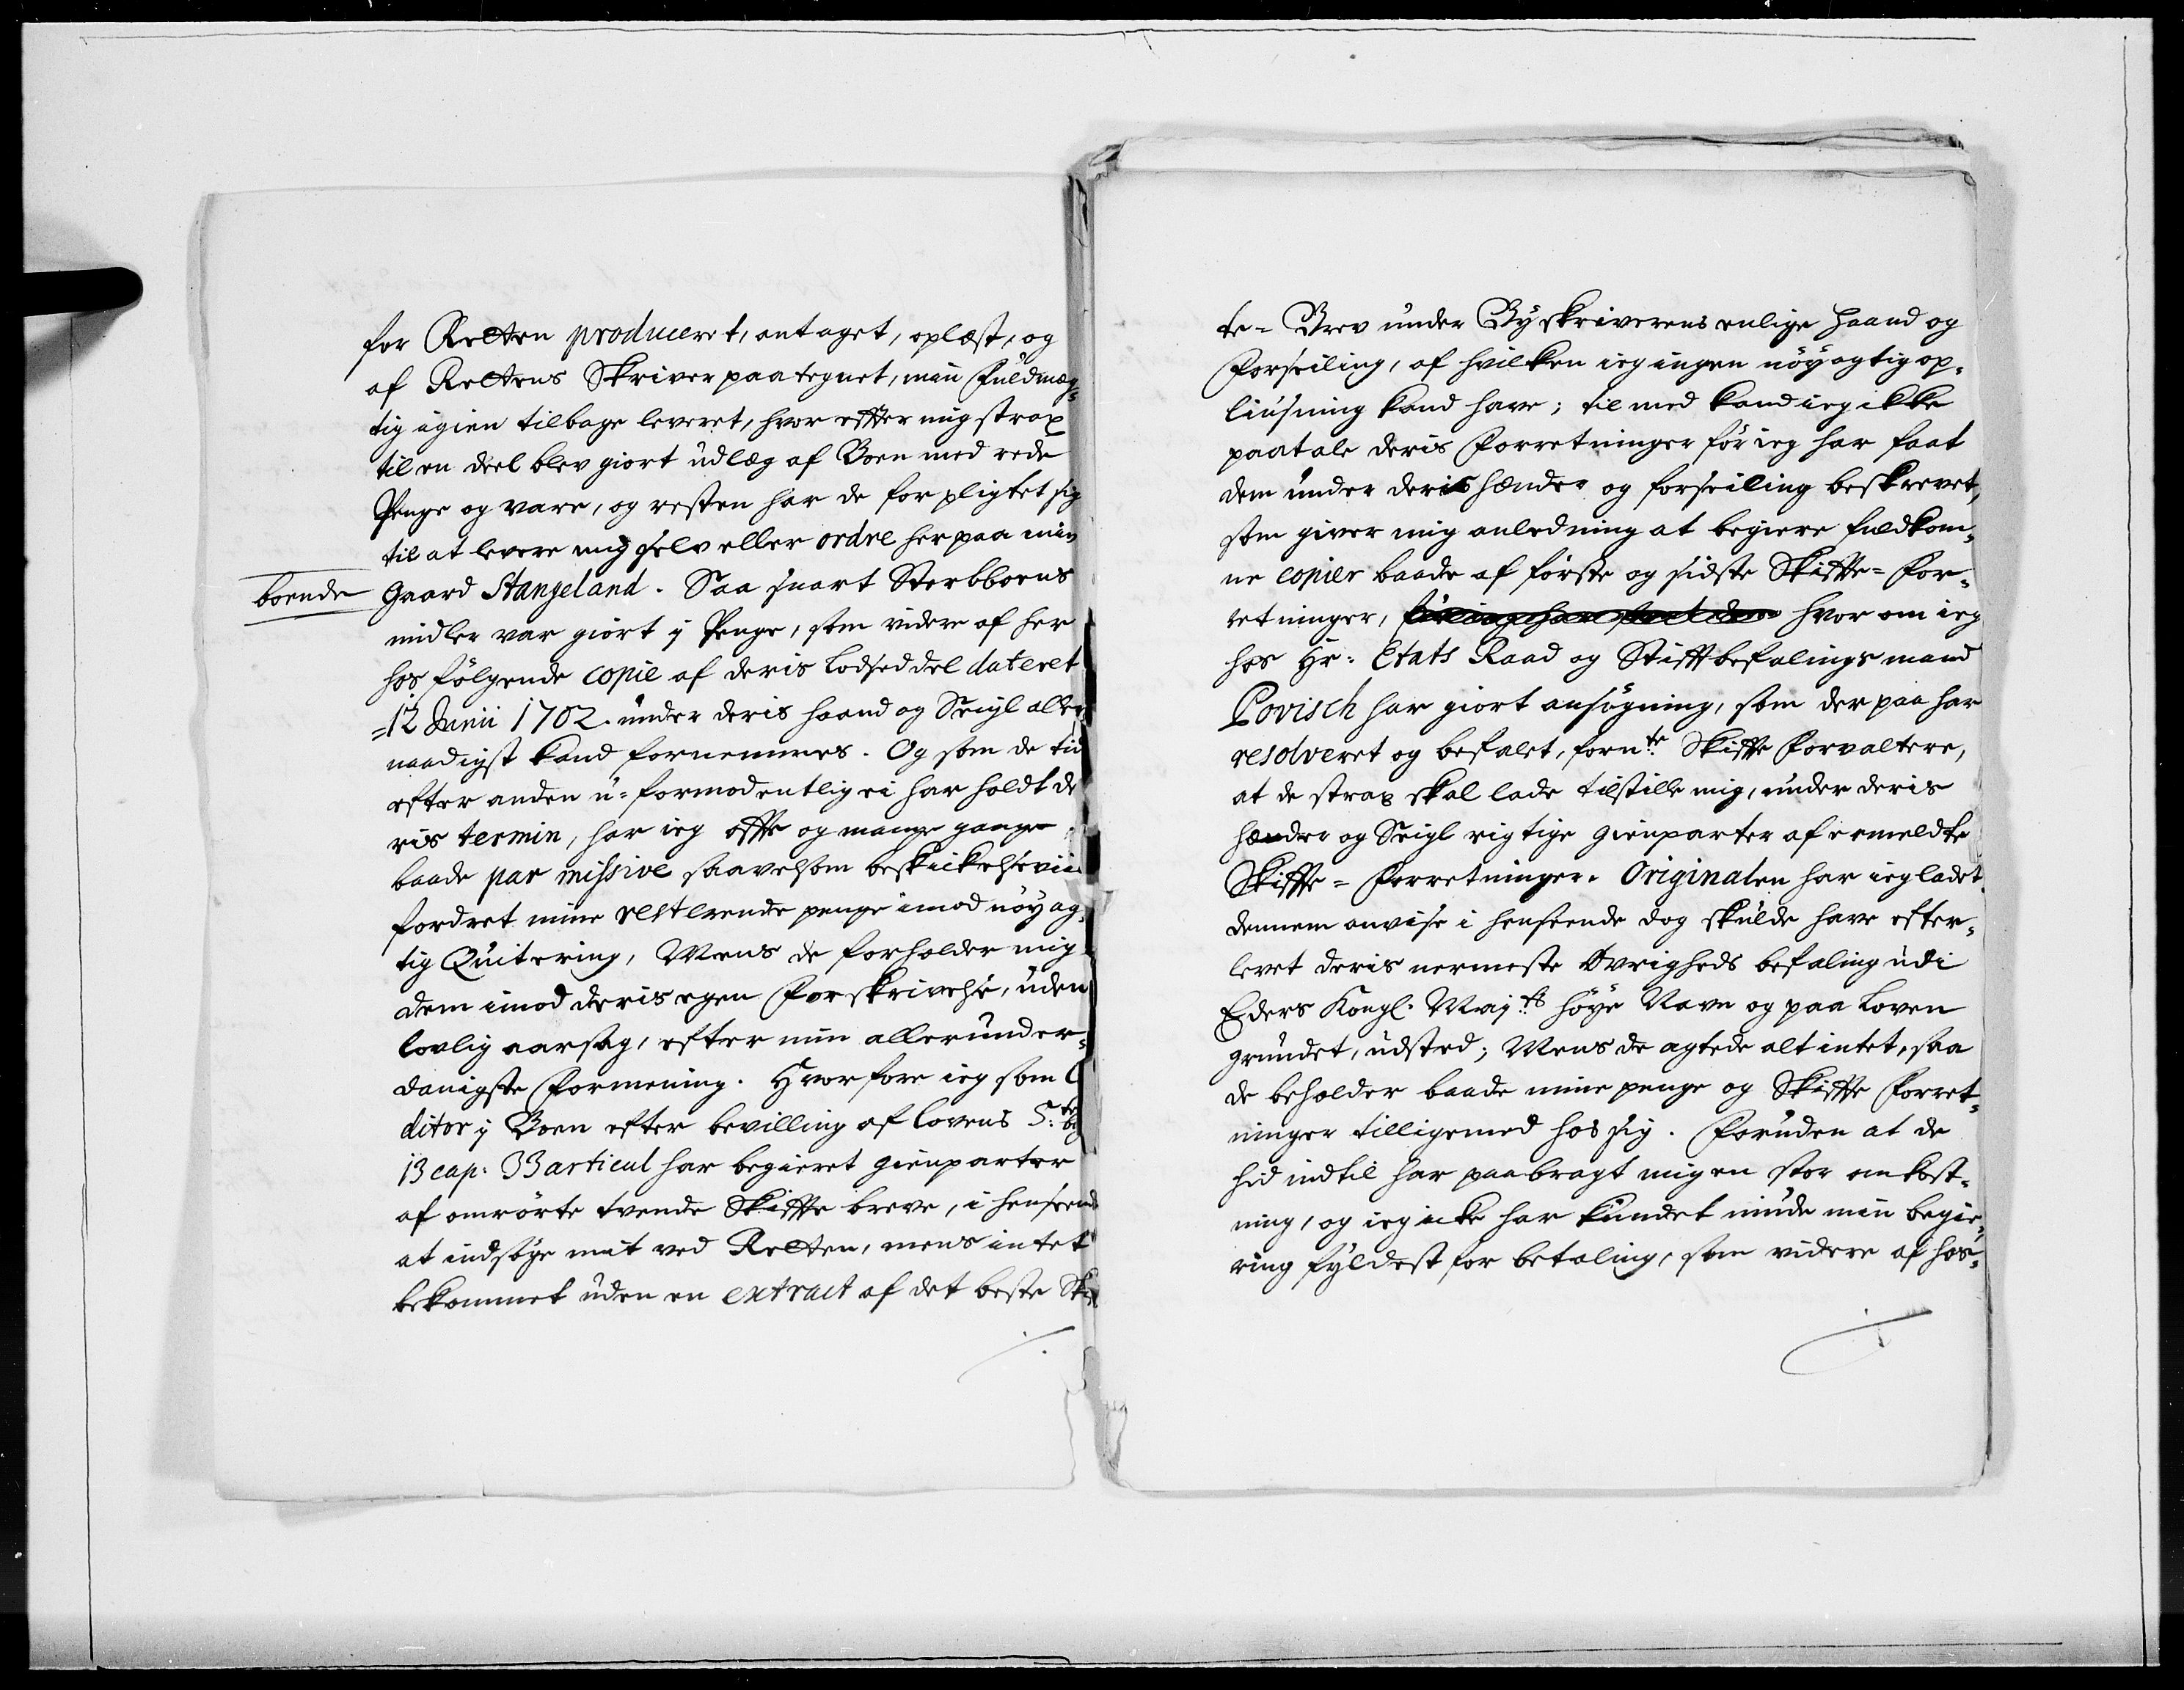 for Retten produceret, antaget, oplæst, og
af Rettens Skriver paategnet, min Fuldmæg-
tig igien tilbage leveret, hvor effter mig strax
til en deel blev giort udlæg af Boen med rede
Penge og vare, og resten har de for pligtet sig
til at levere mig selv eller ordre her paa min
boende Gaard Stangeland. Saa snart Sterbboens
midler var giort i Penge, som videre af her
hos følgende copie af deris Lodseddel dateret
=12 Junii 1702. under deris haand og Seigl aller
naadigst kand fornemmes. Og som de tid
efter anden u=formodentlig ei har holdt de
ris termin, har ieg offte og mange gange
baade par missive saavelsom beskickelsevii
fordret mine resterende penge imod nøyag-
tig Quitering, Mens de forholder mig
dem imod deris egen Forskrivelse, uden
lovlig aarsag, efter min allerunder-
danigste Formening. Hvorfore ieg som C
ditor i Boen efter bevilling af Lovens 5.te bog
13 cap: 33 articul har begieret gienparter
af omrørte tvende Skiffte breve, i henseende
at indsøge mit ved Retten, mens intet
bekommet uden en extract af det beste Skif
te= Brev under Byskriverens enlige Haand og
Forseiling, af hvilken ieg ingen nøyagtig op-
liusning kand have; til med kand ieg ikke
paatale deris Forretninger før ieg har faat
dem under deris hænder og forseiling beskrevet,
som giver mig anledning at begiere fuldkom-
ne copier baade af første og sidste Skiffte= For-
retninger, før ieg har faat dem hvor om ieg
hos Hr: Etats Raad og Stifftbefalingsmand
Povisch har giort ansøgning, som der paa har
resolveret og befalet, fornte Skiffte Forvaltere,
at de strax skal lade tilstille mig, under deris
hænder og Seigl rigtige gienparter af ermeldte
Skiffte= Forretninger. Originalen har ieg ladet
dennem anvise i henseende dog skulde have efter-
levet deris nermeste Øvrigheds befaling udi
Eders Kongl. Maj:ts høye Navn og paa Loven
grundet, udsted; Mens de agtede alt intet, saa
de beholder baade mine penge og Skiffte Forret-
ninger tilligemed hos sig. Foruden at de
hid indtil har paabragt mig en stor omkost-
ning, og ieg icke har kundet niude min begie-
ring fyldest for betaling, som videre af hos-